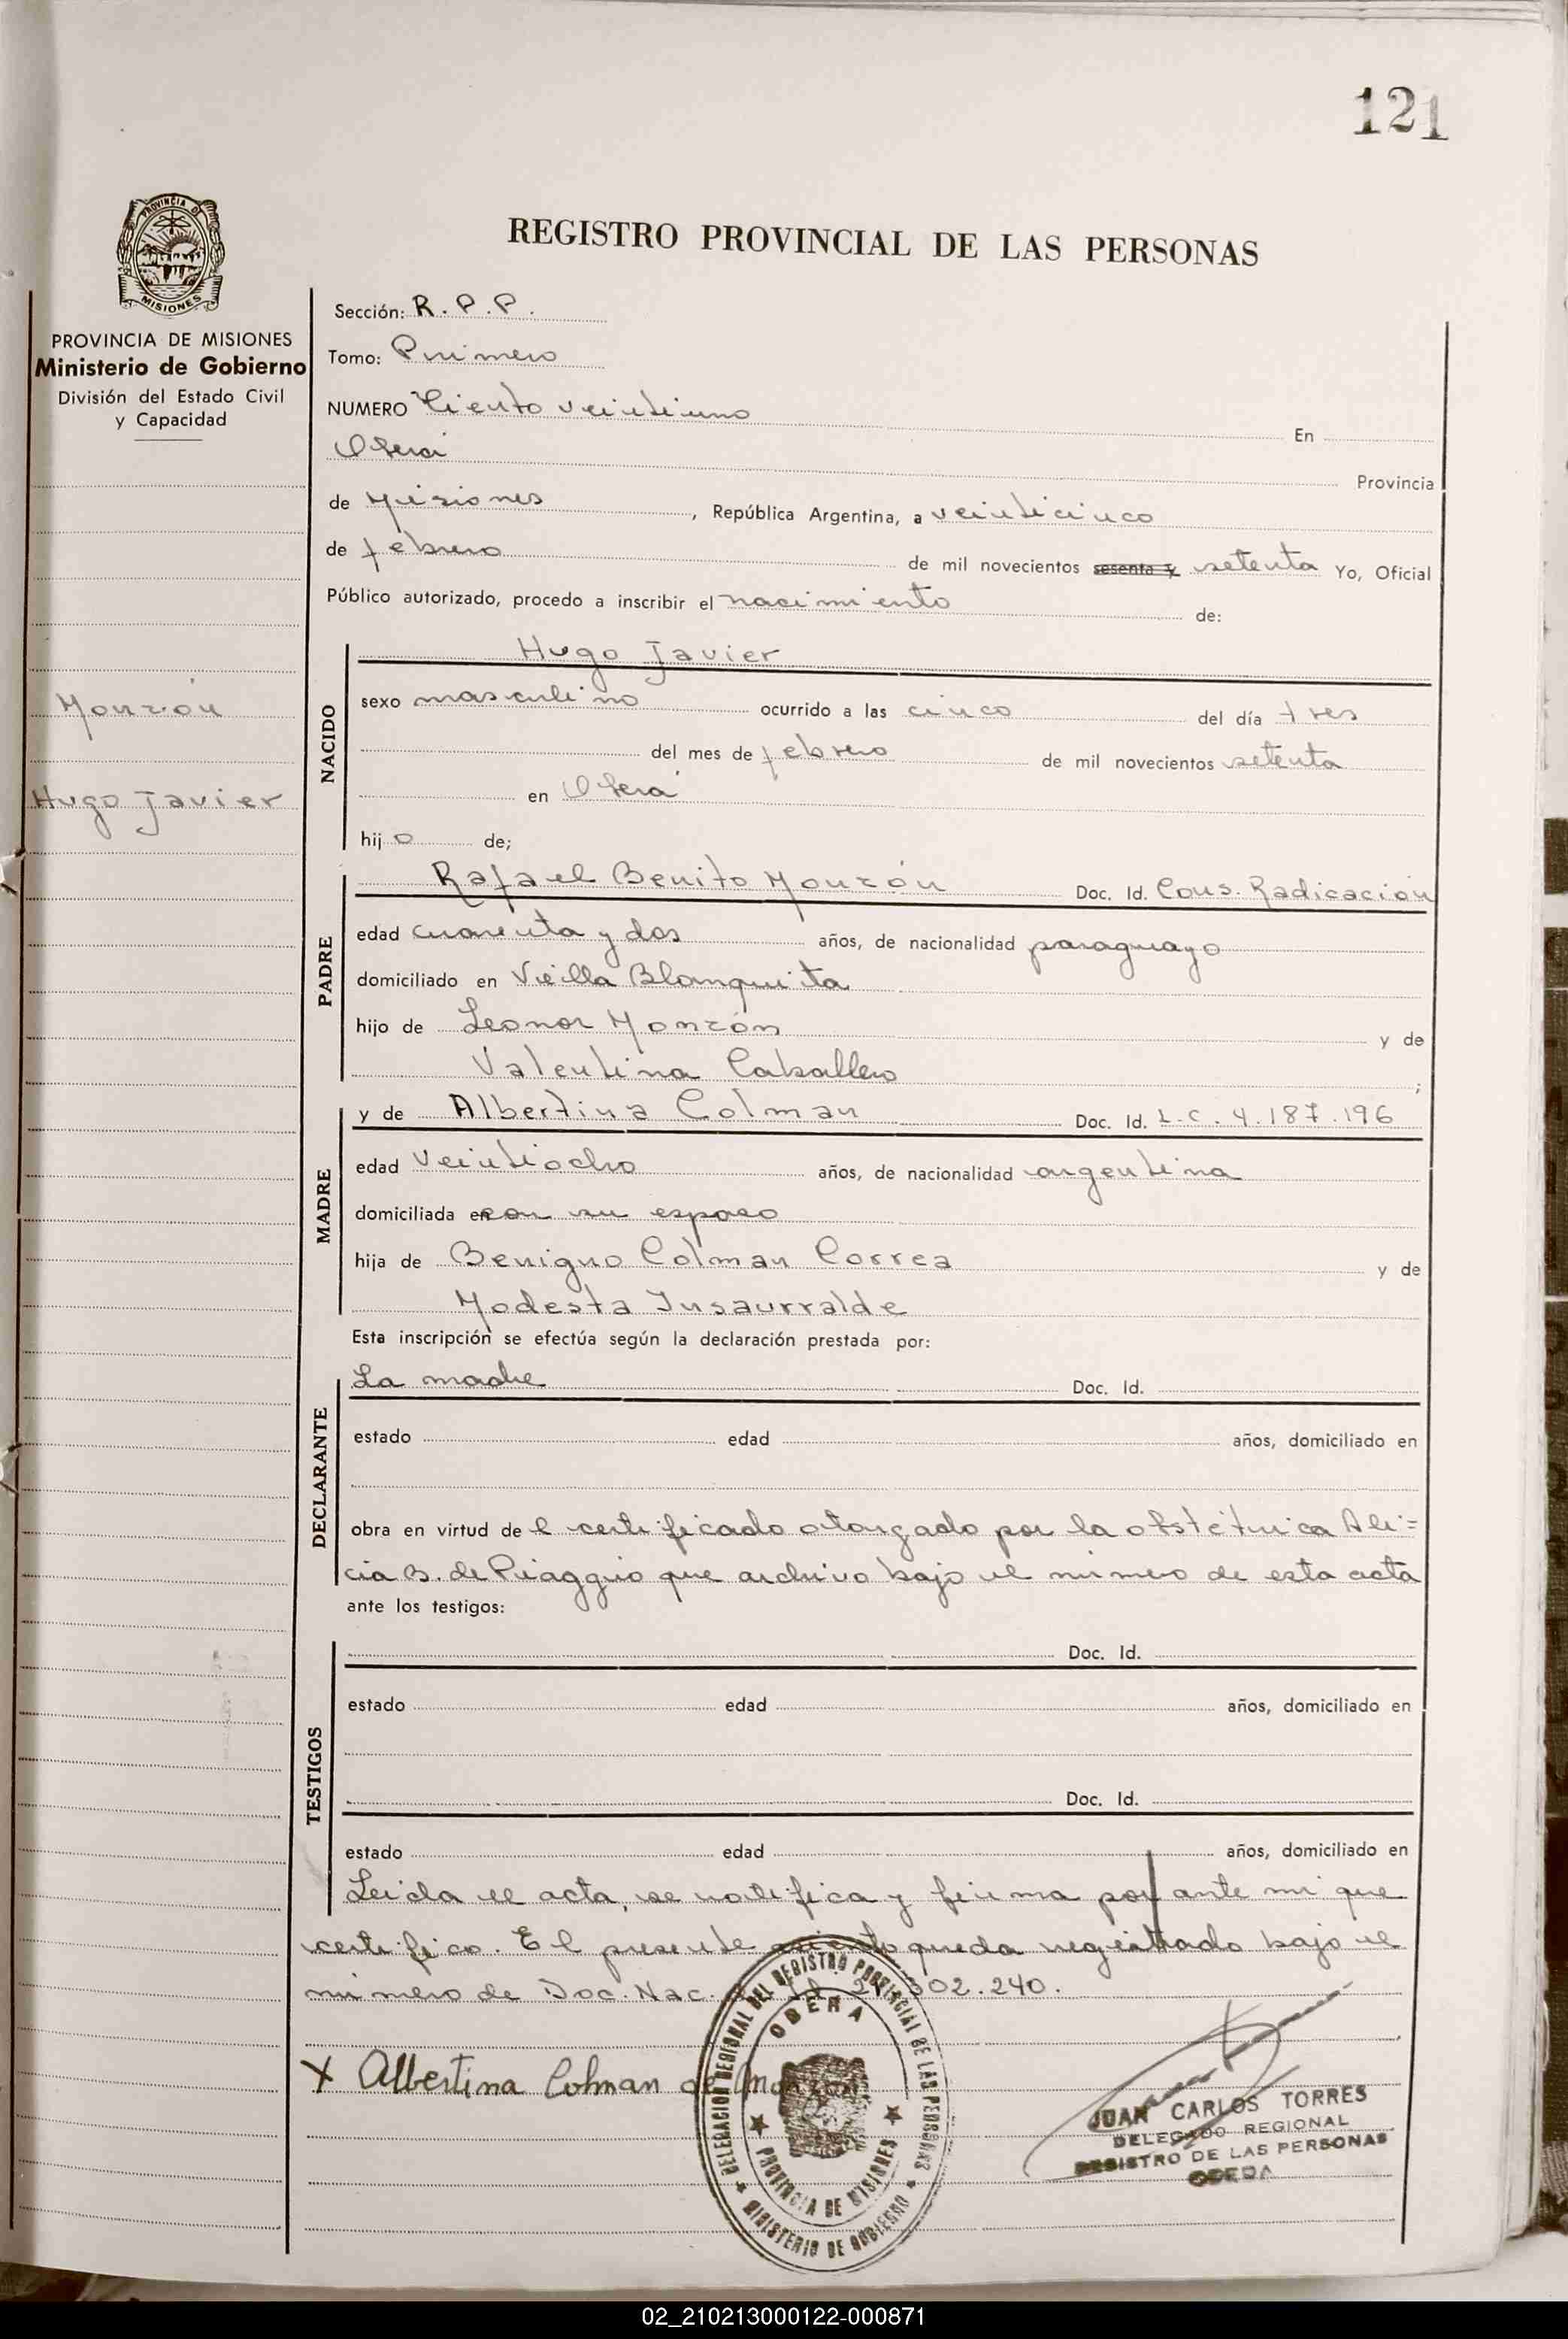 121
PROVINCIA DE
MISIONES
PROVINCIA DE MISIONES
Ministerio de Gobierno
División del Estado Civil
y Capacidad
Monzón
Hugo Javier
REGISTRO PROVINCIAL DE LAS PERSONAS
Sección: R.P.P.
Tomo: Primero
NUMERO Ciento veintiuno En
Oberá Provincia
de Misiones, República Argentina, a veinticinco
de febrero de mil novecientos sesenta y setenta Yo, Oficial
Público autorizado, procedo a inscribir el nacimiento de:
NACIDO
Hugo Javier
sexo masculino ocurrido a las cinco del día tres
del mes de febrero de mil novecientos setenta
en Oberá
hijo de;
PADRE
Rafael Benito Monzón Doc. Id. Cons. Radicación
edad cuarenta y dos años, de nacionalidad paraguayo
domiciliado en Villa Blanquita
hijo de Leonor Monzón y de
Valentina Caballero ;
MADRE
y de Albertina Colman Doc. Id. L.C. 4.187.196
edad veintiocho años, de nacionalidad argentina
domiciliada en con su esposo
hija de Benigno Colman Correa y de
Modesta Insaurralde
Esta inscripción se efectúa según la declaración prestada por:
DECLARANTE
La madre Doc. Id.
estado edad años, domiciliado en
obra en virtud de el certificado otorgado por la obstétrica Ali=
cia B. de Piaggio que archivo bajo el número de esta acta
ante los testigos:
TESTIGOS
Doc. Id.
estado edad años, domiciliado en
Doc. Id.
estado edad años, domiciliado en
Leída el acta, se notifica y firma por ante mi que
certifico. El presente asiento queda registrado bajo el
número de Doc. Nac. 302.240.
X Albertina Colman de Monzon
DELEGACION REGIONAL DEL REGISTRO PROVINCIAL DE LAS PERSONAS
OBERA
PROVINCIA DE MISIONES
MINISTERIO DE GOBIERNO
JUAN CARLOS TORRES
DELEGADO REGIONAL
REGISTRO DE LAS PERSONAS
OBERA
02_210213000122-000871